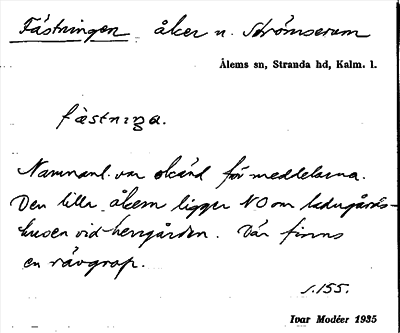 Fästningen åker u. Strömserum
Ålems sn, Stranda hd, Kalm. l.
fästnıŋa.
Namnanl. var okänd för meddelarna.
Den lilla åkern ligger NO om ladugårds-
husen vid herrgården. Där finns
en rävgrop.
s. 155.
Ivar Modéer 1935